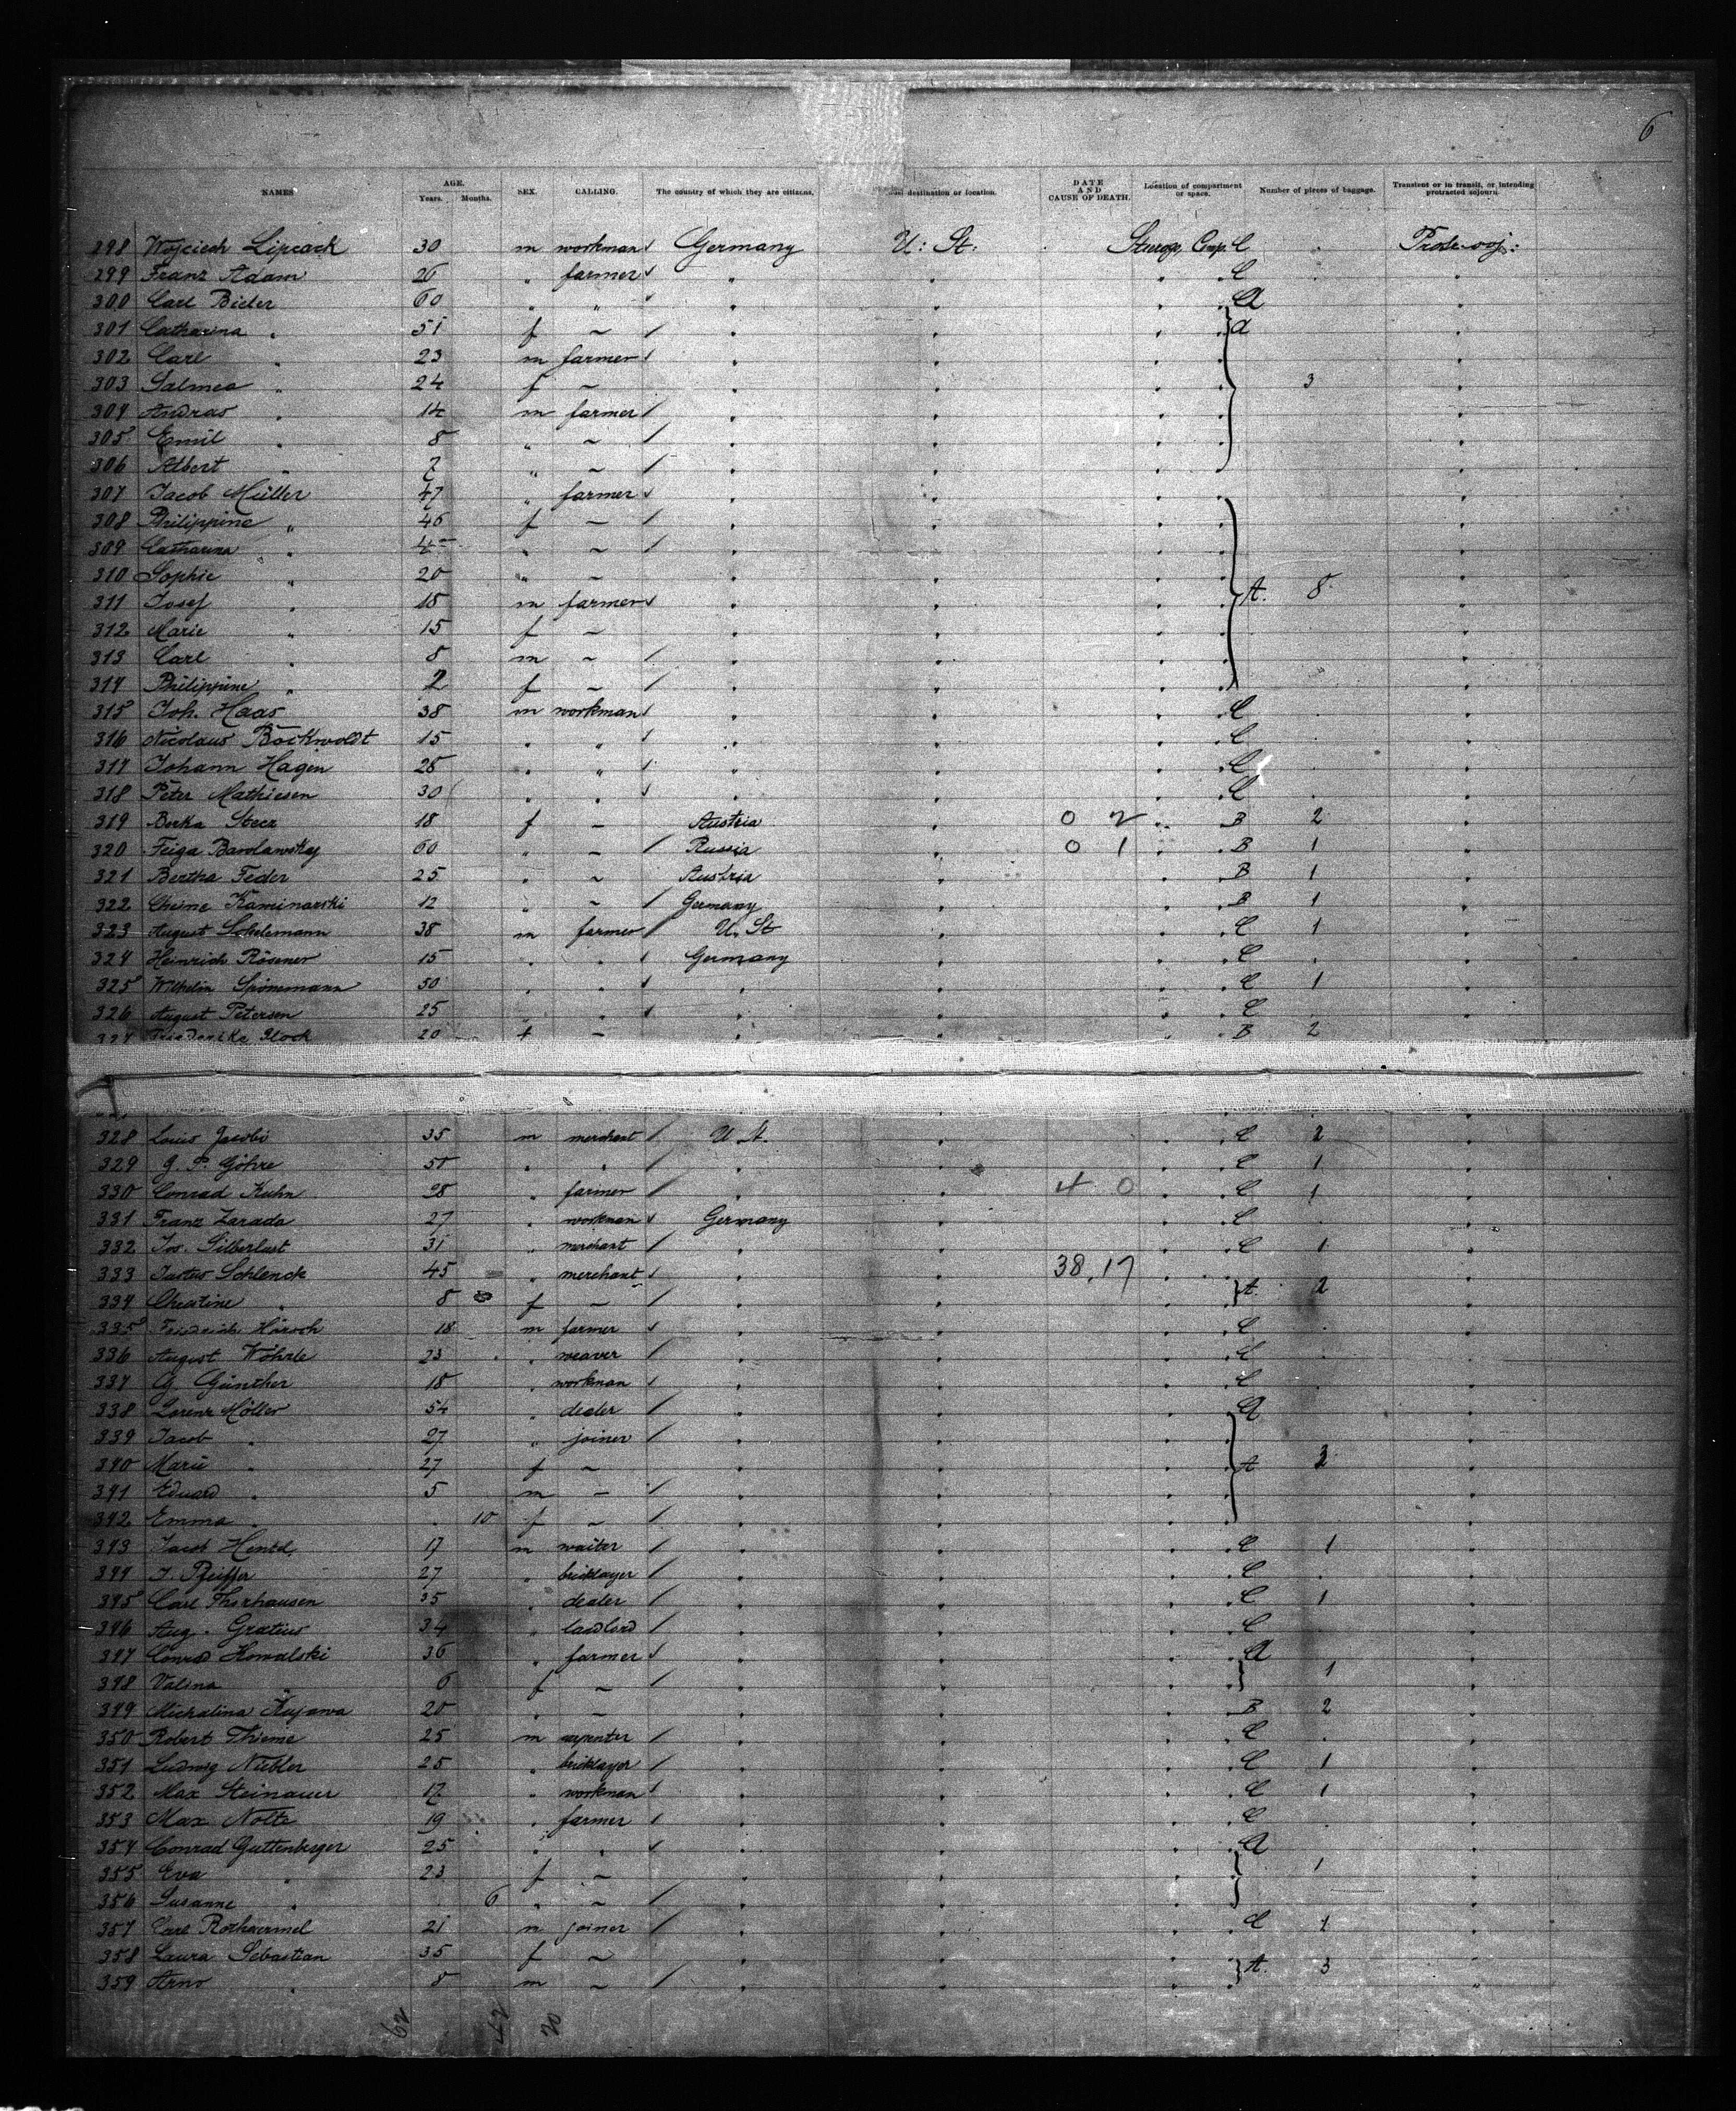 6
NAMES AGE. Years. Months. SEX. CALLING. The country of which they are citizens. destination or location. DATE AND CAUSE OF DEATH. Location of compartment or space. Number of pieces of baggage. Transient or in transit, or intending protracted sojourn.
298 Wojciech Lipcack 30 m workman Germany U: St: Steerage, Comp. C Protr. soj:
299 Franz Adam 26 " farmer " " " C "
300 Carl Bieler 60 " " " " " A "
301 Catharina " 51 f ~ " " " A "
302 Carl " 23 m farmer " " " "
303 Salmea " 24 f ~ " " " 3 "
304 Andras " 14 m farmer " " " "
305 Emil " 8 " ~ " " " "
306 Albert " 7 " ~ " " " "
307 Jacob Müller 47 " farmer " " " "
308 Philippine " 46 f ~ " " " "
309 Catharina " " ~ " " " "
310 Sophie " 20 " ~ " " " "
311 Josef " 18 m farmer " " " A. 8 "
312 Marie " 15 f ~ " " " "
313 Carl " 8 m ~ " " " "
314 Philippine " 2 f ~ " " " "
315 Joh. Haas 38 m workman " " " C "
316 Nicolaus Böckwoldt 15 " " " " " C "
317 Johann Hagen 28 " " " " " C "
318 Peter Mathiesen 30 " " " " " C "
319 Berka Steer 18 f ~ Austria " 0 2 " B 2 "
320 Feiga Barolawsky 60 " ~ Russia " 0 1 " B 1 "
321 Bertha Feder 25 " ~ Austria " " B 1 "
322 Kaminarski 12 " ~ Germany " " B 1 "
323 August Schelemann 38 m farmer U. St " " C 1 "
324 Heinrich Rösener 15 " " Germany " " C "
325 Wilhelm Spönemann 50 " " " " " C 1 "
326 August Petersen 25 " " " " " C "
327 Friederike Block 20 f ~ " " " B 2 "
328 Louis Jacobi 35 m merchant U. St. " " C 2 "
329 G. P. Göhre 51 " " " " " C 1 "
330 Conrad Kuhn 28 " farmer " " 4 0 " C 1 "
331 Franz Zarada 27 " workman Germany " " C "
332 Jos. Silberlust 31 " merchant " " " C 1 "
333 Justus Schlenck 45 " merchant " " 38,17 " "
334 Christine " 8 f ~ " " " A. 2 "
335 Friedrich Hörsch 18 m farmer " " " C "
336 August Wöhrle 23 " weaver " " " C "
337 G Günther 18 " workman " " " C "
338 Lorenz Möller 54 " dealer " " " A "
339 Jacob " 27 " joiner " " " "
340 Marie " 27 f ~ " " " A 3 "
341 Eduard " 5 m ~ " " " "
342 Emma " 10 f ~ " " " "
343 Jacob 17 m waiter " " " C 1 "
344 J. Pfeiffer 27 " bricklayer " " " C "
345 Carl Thorhausen 35 " dealer " " " C 1 "
346 Aug. Gratius 34 " landlord " " " C "
347 Conrad Kowalski 36 " farmer " " " A "
348 Valina " 6 f ~ " " " 1 "
349 Michalina Kujawa 20 " ~ " " " B 2 "
350 Robert Thieme 25 m carpenter " " " C "
351 Ludwig Niebler 25 " bricklayer " " " C 1 "
352 Max Steinauer 17 " workman " " " C 1 "
353 Max Nolte 19 " farmer " " " C "
354 Conrad Guttenberger 25 " " " " " A "
355 Eva " 23 f ~ " " " 1 "
356 Susanne " 6 " ~ " " " "
357 Carl Rothaermel 21 m joiner " " " C 1 "
358 Laura Sebastian 35 f ~ " " "
359 Arno " 8 m ~ " " " A. 3 "
62 42 20